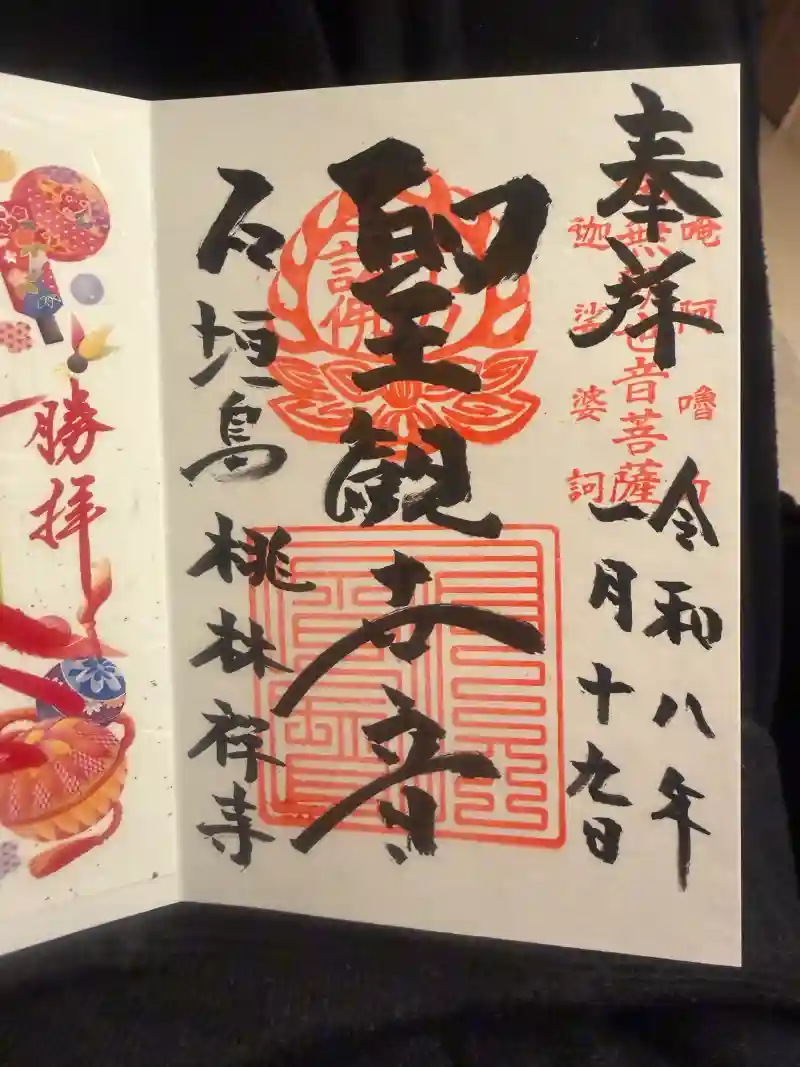 奉拝
令和八年
一月十九日
唵阿嚕
無音菩薩
娑婆訶
聖観世音
石垣島 桃林禅寺
勝拝